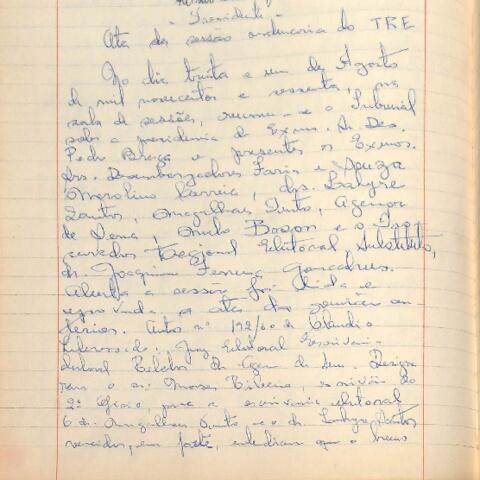 "Presidente"
Ata da sessão ordinaria do TRE
No dia trinta e um de Agosto
de mil novecentos e sessenta, na
sala de sessões, reuniu-se o Tribunal
sob a presidencia do Exmo. Sr. Des.
Pedro Braga e presentes os Exmos.
Srs. Desembargadores Faria e Souza
Marcolino Correia, drs.
Santos, Magalhães Pinto, Agenor
de Senna, Onofre e o Pro-
curador Regional Eleitoral, Substituto,
dr. Joaquim Ferreira Gonçalves.
Aberta a sessão foi lida e
aprovada a ata da reunião an-
terior. Autos nº 192/60 de Claudio
Interessado: Juiz Eleitoral Escrivania
eleitoral
para o sr. Moraes escrivão do
2º Oficio, para a escrivania eleitoral
6 dr. Magalhães Pinto e o dr. Santos
vencidos, em parte, entendiam que o